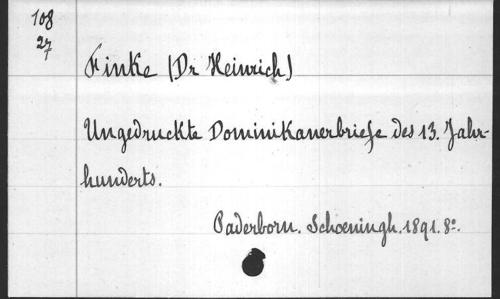 108
27
7
Finke (Dr Heinrich)
Ungedruckte Dominikanerbriefe des 13. Jahr-
hunderts.
Paderborn. Schoeningh. 1891. 8º.